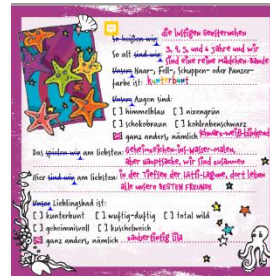 So heißen wir: die lustigen Seesternchen
So alt sind wir: 3, 4, 5, und 6 Jahre und wir
sind eine reine Mädchen-Bande
Unsere Haar-, Fell-, Schuppen- oder Panzer-
farbe ist: Kunterbunt
Unsere Augen sind:
[ ] himmelblau [ ] nixengrün
[ ] schokobraun [ ] kohlrabenschwarz
[x] ganz anders, nämlich schwarz-weiß-blinkend
Das spielen wir am liebsten: Geheimzeichen-ins-Wasser-malen,
aber hauptsache, wir sind zusammen
Hier sind wir am liebsten: in der Tiefsee der Latii-Lagune, dort leben
alle unsere BESTEN FREUNDE
Unser Lieblingsbad ist:
[ ] kunterbunt [ ] wuftig-duftig [ ] total wild
[ ] geheimnisvoll [ ] kuschelweich
[x] ganz anders, nämlich zauberfintig lila